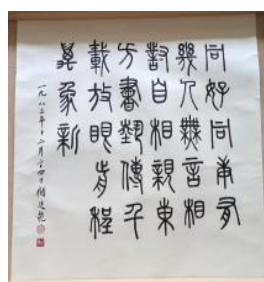 同好同舟有
幾人無言相
對自相親東
方書藝傳千
載放眼前程
萬象新
一九八三年十二月廿四日